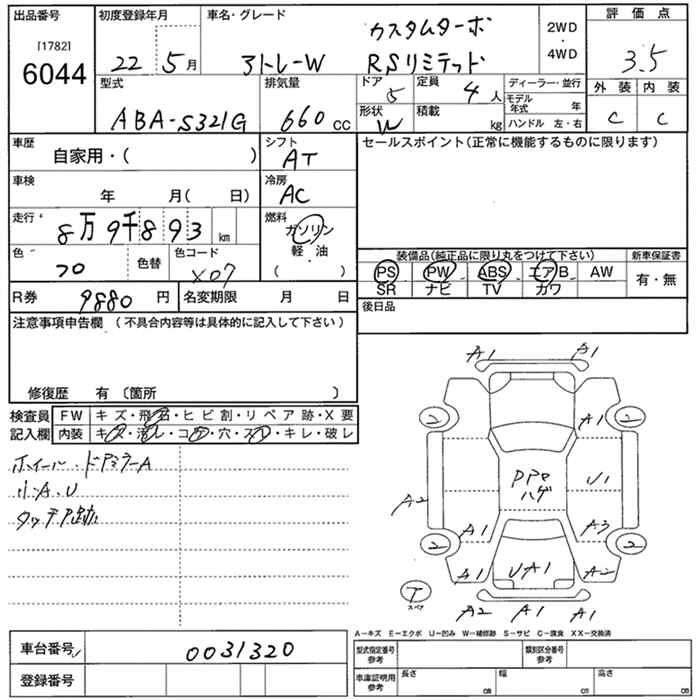 出品番号 初度登録年月 車名・グレード 評価点
[1782]
6044
22 5月
カスタムターボ
RSリミテッド
2WD
・
4WD
3.5
型式 排気量 ドア 定員 ディーラー・並行 外装 内装
ABA-S321G 660cc 5 4人
モデル年式 年
形状 W 積載 kg ハンドル 左・右 C C
車歴 シフト セールスポイント(正常に機能するものに限ります)
自家用・( ) AT
車検 冷房
年 月( 日) AC
走行 燃料
8万9千893km ガソリン
軽・油
( )
色 色替 色コード
X07
装備品(純正品に限り丸をつけて下さい) 新車保証書
PS PW ABS エアB AW 有・無
SR ナビ TV カワ
R券 9880円 名変期限 月 日 後日品
注意事項申告欄(不具合内容等は具体的に記入して下さい)
修復歴 有〔箇所 〕
検査員 FW キズ・飛石・ヒビ割・リペア跡・X要
記入欄 内装 キズ・汚レ・コゲ・穴・スレ・キレ・破レ
ホイール・ドアミラーA
小A、U
タッチア跡
A1 A1
2 A1 2
Pアロ
ハゲ
U1
A2
A1 A3
2 2
A1 UA1 A2
T
スペア
A2 A1 A1
A-キズ E-エクボ U-凹み W-補修跡 S-サビ C-腐食 XX-交換済
車台番号 0031320
登録番号
型式指定番号 参考 類別区分番号 参考
車庫証明用 参考 長さ cm 幅 cm 高さ cm